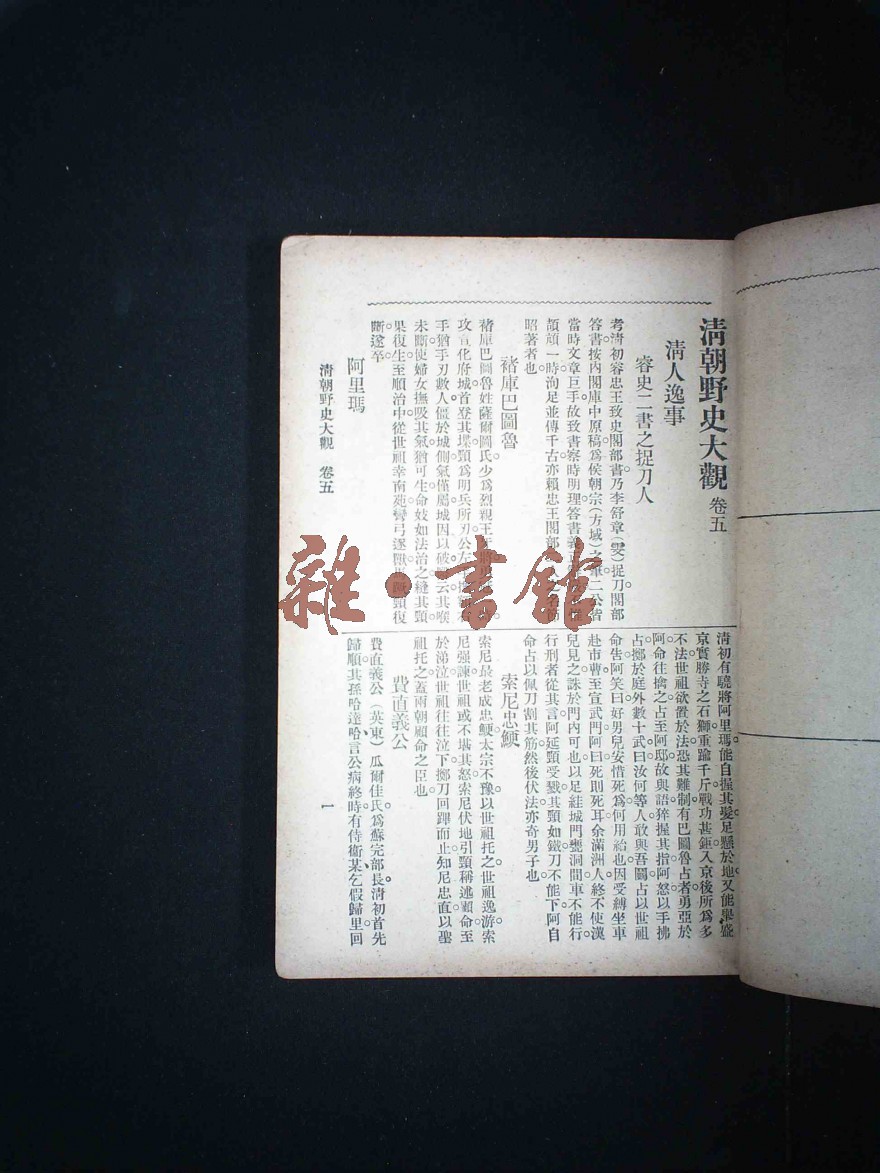 清朝野史大觀 卷五
清人逸事
睿史二書之捉刀人
考清初睿忠王致史閣部書乃李舒章(雯)捉刀閣部
答書按內閣庫中原稿為侯朝宗(方域)之筆二公皆
當時文章巨手故致書察時明理答書義
頡頏一時洵足並傳千古亦賴忠王閣部
昭著者也
褚庫巴圖魯
褚庫巴圖魯姓薩爾圖氏少為烈親王
攻宣化府城首登其堞頸為明兵所刃公左
手猶手刃數人僵於城側氣僅屬城因以破云其喉
未斷使婦女撫吸其氣猶可生命妓如法治之縫其頸
果復生至順治中從世祖幸南苑彎弓逐獸頸復
斷遂卒
阿里瑪
清朝野史大觀 卷五
清初有驍將阿里瑪能自握其髮足懸於地又能舉盛
京實勝寺之石獅重踰千斤戰功甚鉅入京後所為多
不法世祖欲置於法恐其難制有巴圖魯占者勇亞於
阿命往擒之占至阿邸故與語猝握其指阿怒以手拂
占擲於庭外數十武曰汝何等人敢與吾鬭占以世祖
命告阿笑曰好男兒安惜死為何用紿也因受縛坐車
赴市曹至宣武門阿曰死則死耳余滿洲人終不使漢
兒見之誅於門內可也以足絓城門甕洞間車不能行
行刑者從其言阿延頸受戮其頸如鐵刀不能下阿自
命占以佩刀割其筋然後伏法亦奇男子也
索尼忠鯁
索尼最老成忠鯁太宗不豫以世祖托之世祖逸游索
尼强諫世祖或不堪其怒索尼伏地引頸稱述賴命至
於涕泣世祖往往泣下擲刀回蹕而止知尼忠直以聖
祖托之蓋兩朝顧命之臣也
費直義公
費直義公(英東)瓜爾佳氏為蘇完部長清初首先
歸順其孫哈達哈言公病終時有侍衞某乞假歸里回
一
雜·書館